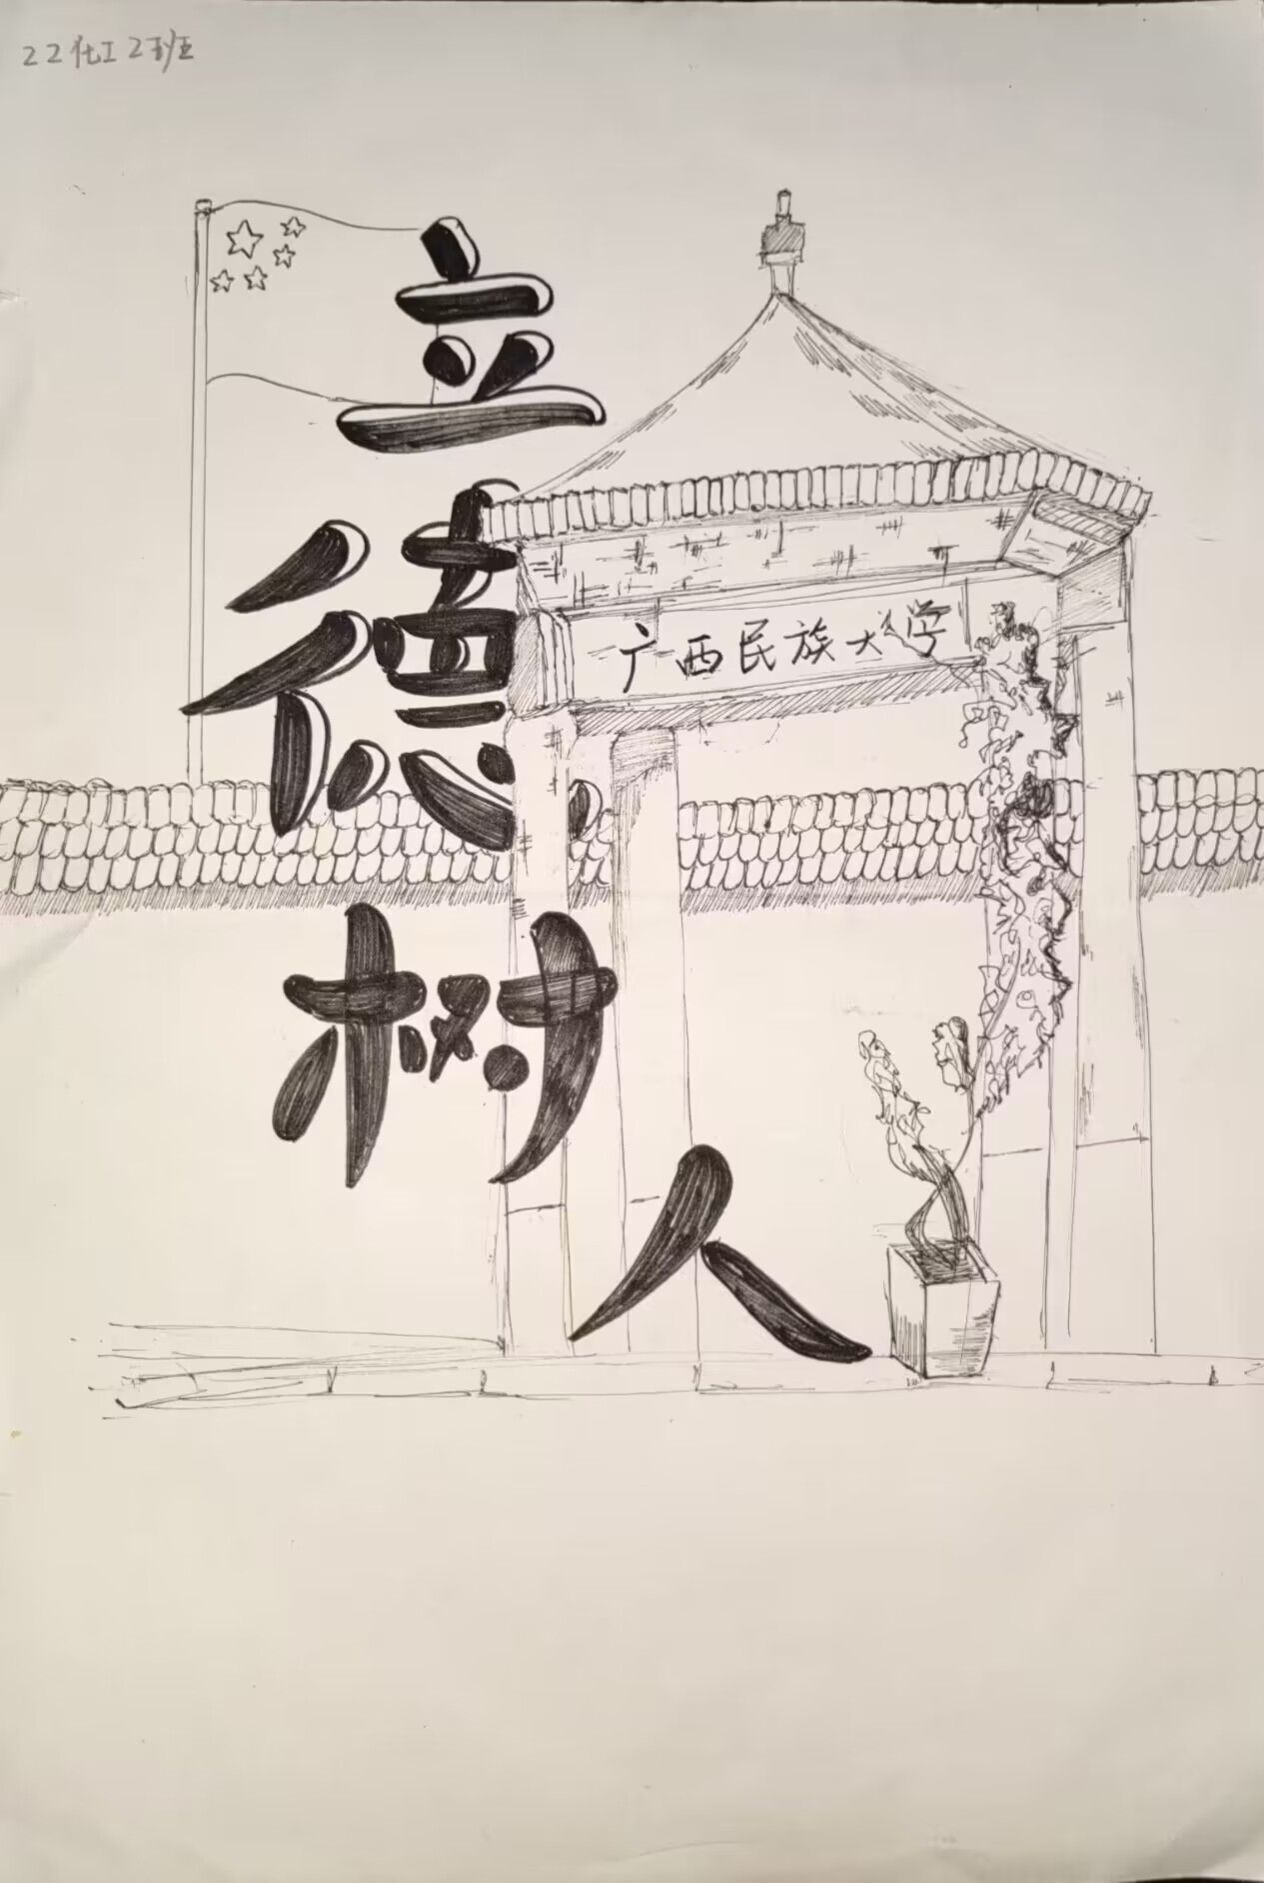 22化工2班
立
德
树
人
广西民族大学